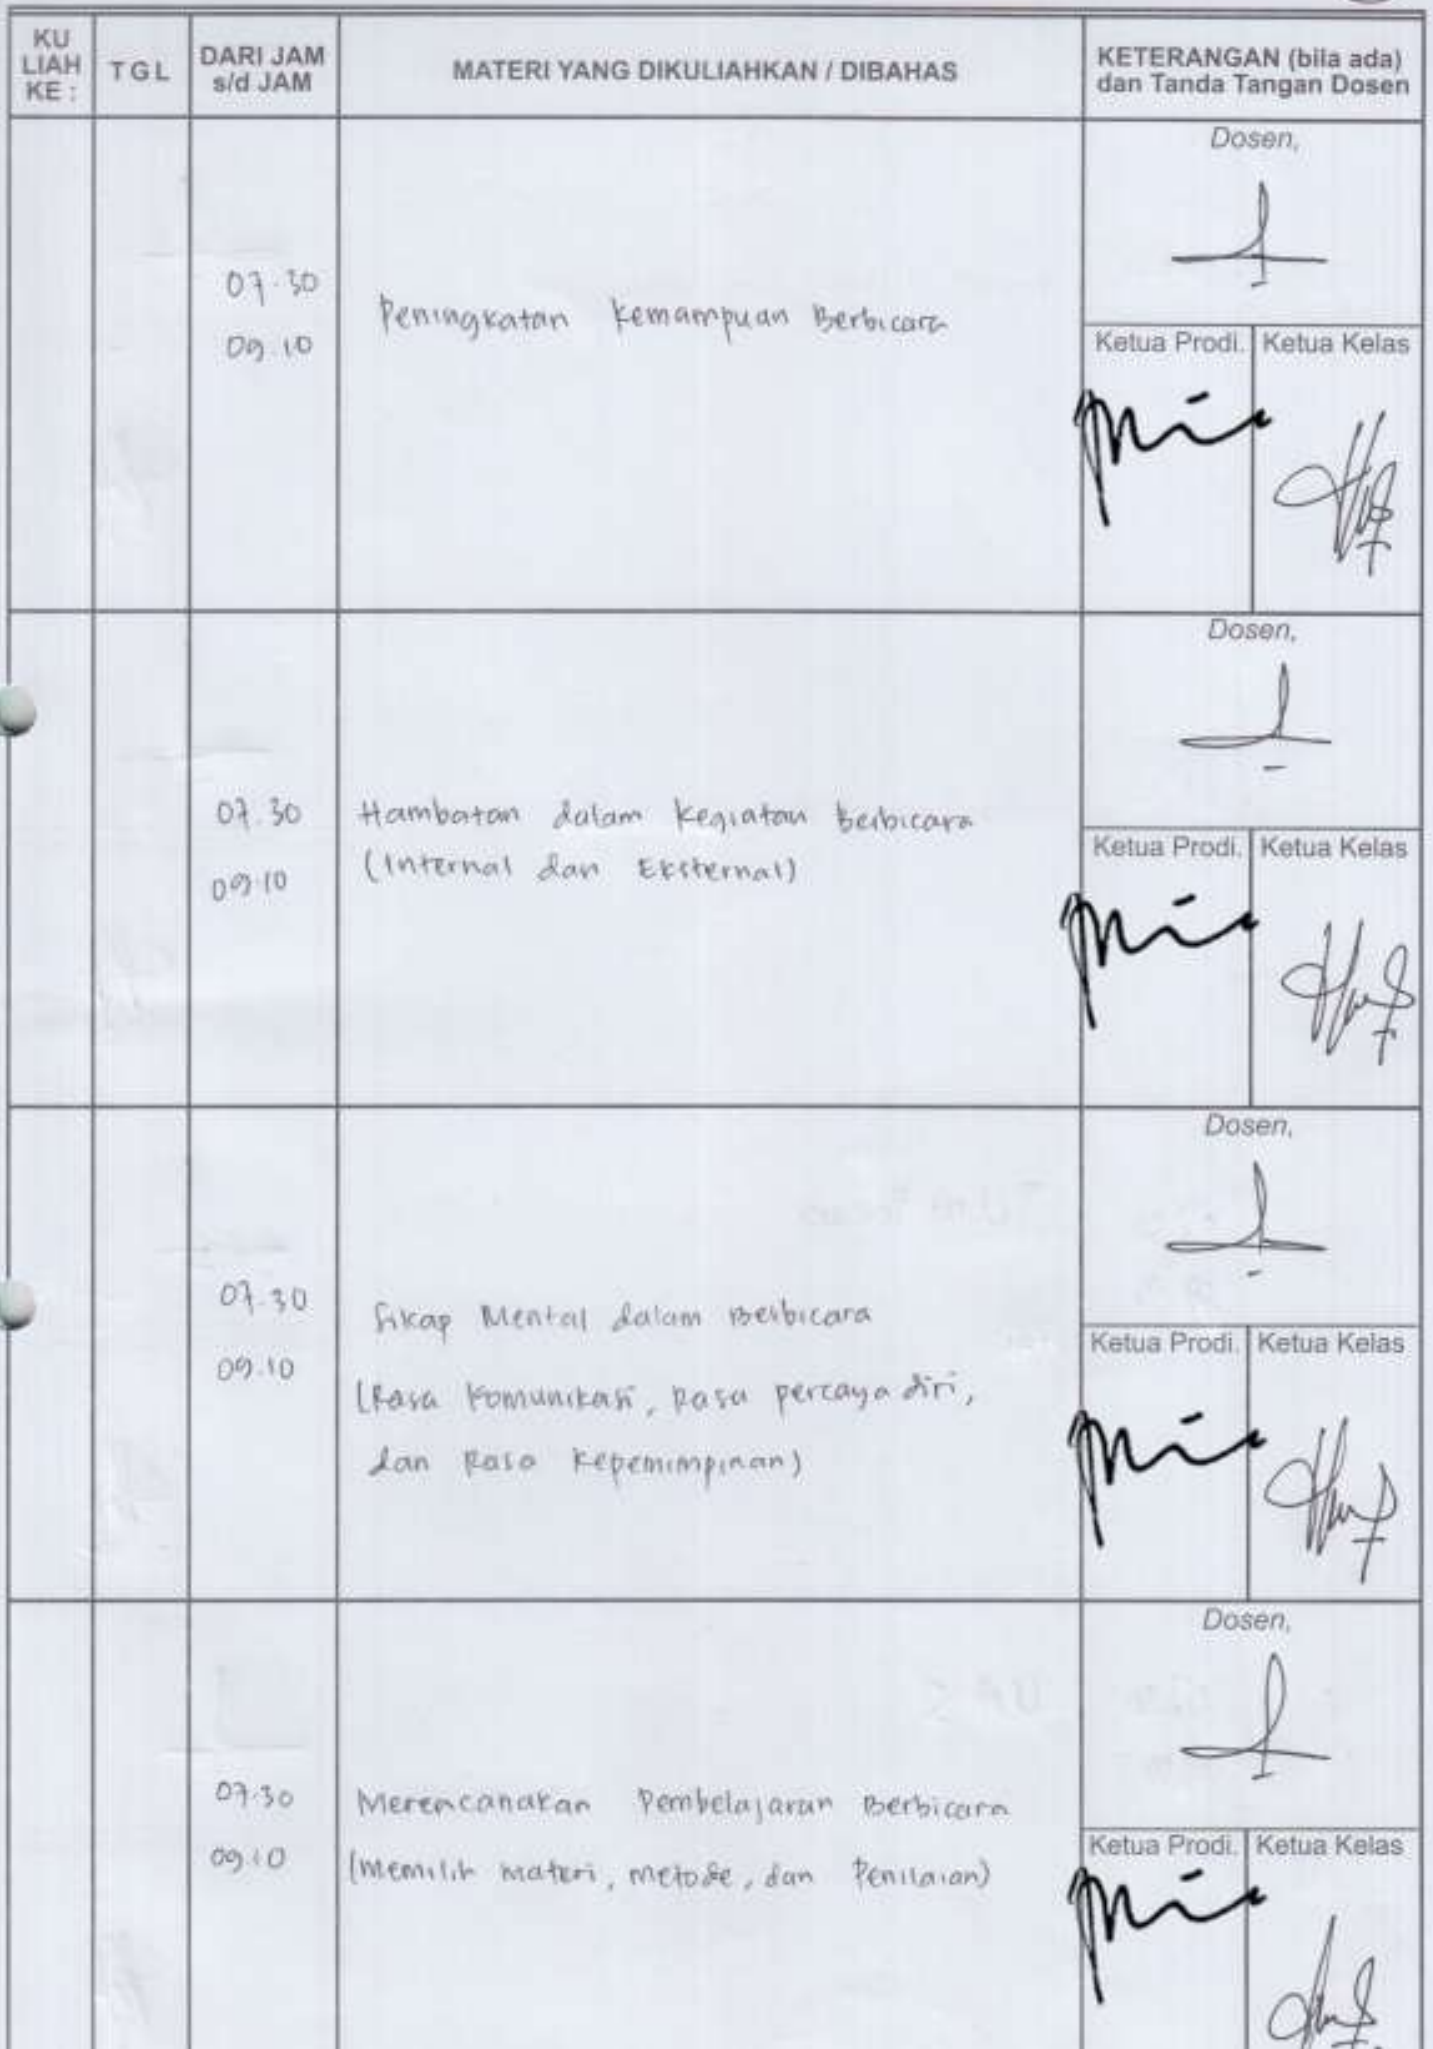 KU
LIAH
KE :
TGL
DARI JAM
s/d JAM
MATERI YANG DIKULIAHKAN / DIBAHAS
KETERANGAN (bila ada)
dan Tanda Tangan Dosen
Dosen,
07.30
09.10
Peningkatan Kemampuan Berbicara
Ketua Prodi.
Ketua Kelas
Dosen,
07.30
09.10
Hambatan dalam Kegiatan Berbicara
(Internal dan Eksternal)
Ketua Prodi.
Ketua Kelas
Dosen,
07.30
09.10
Sikap Mental dalam Berbicara
(Rasa Komunikasi, Rasa percaya diri,
dan Rasa Kepemimpinan)
Ketua Prodi.
Ketua Kelas
Dosen,
07.30
09.10
Merencanakan Pembelajaran Berbicara
(Memilih materi, metode, dan Penilaian)
Ketua Prodi.
Ketua Kelas